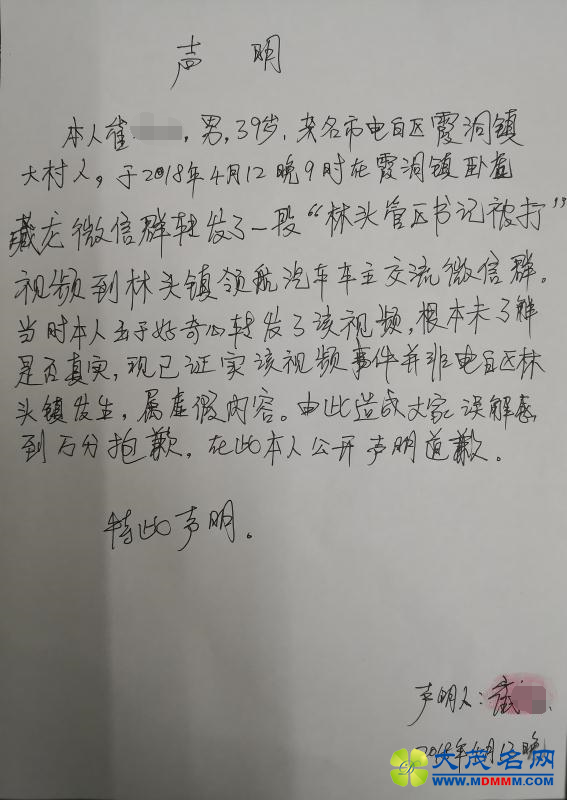 声 明
本人崔 ，男，39岁，茂名市电白区霞洞镇
大村人，于2018年4月12晚9时在霞洞镇卧虎
藏龙微信群转发了一段“林头管区书记被打”
视频到林头镇领航汽车车主交流微信群。
当时本人出于好奇心转发了该视频，根本未了解
是否真实，现已证实该视频事件并非电白区林
头镇发生，属虚假内容。由此造成大家误解感
到万分抱歉，在此本人公开声明道歉。
特此声明。
声明人：崔
2018年4月13晚
大茂名网
WWW.MDMMM.COM